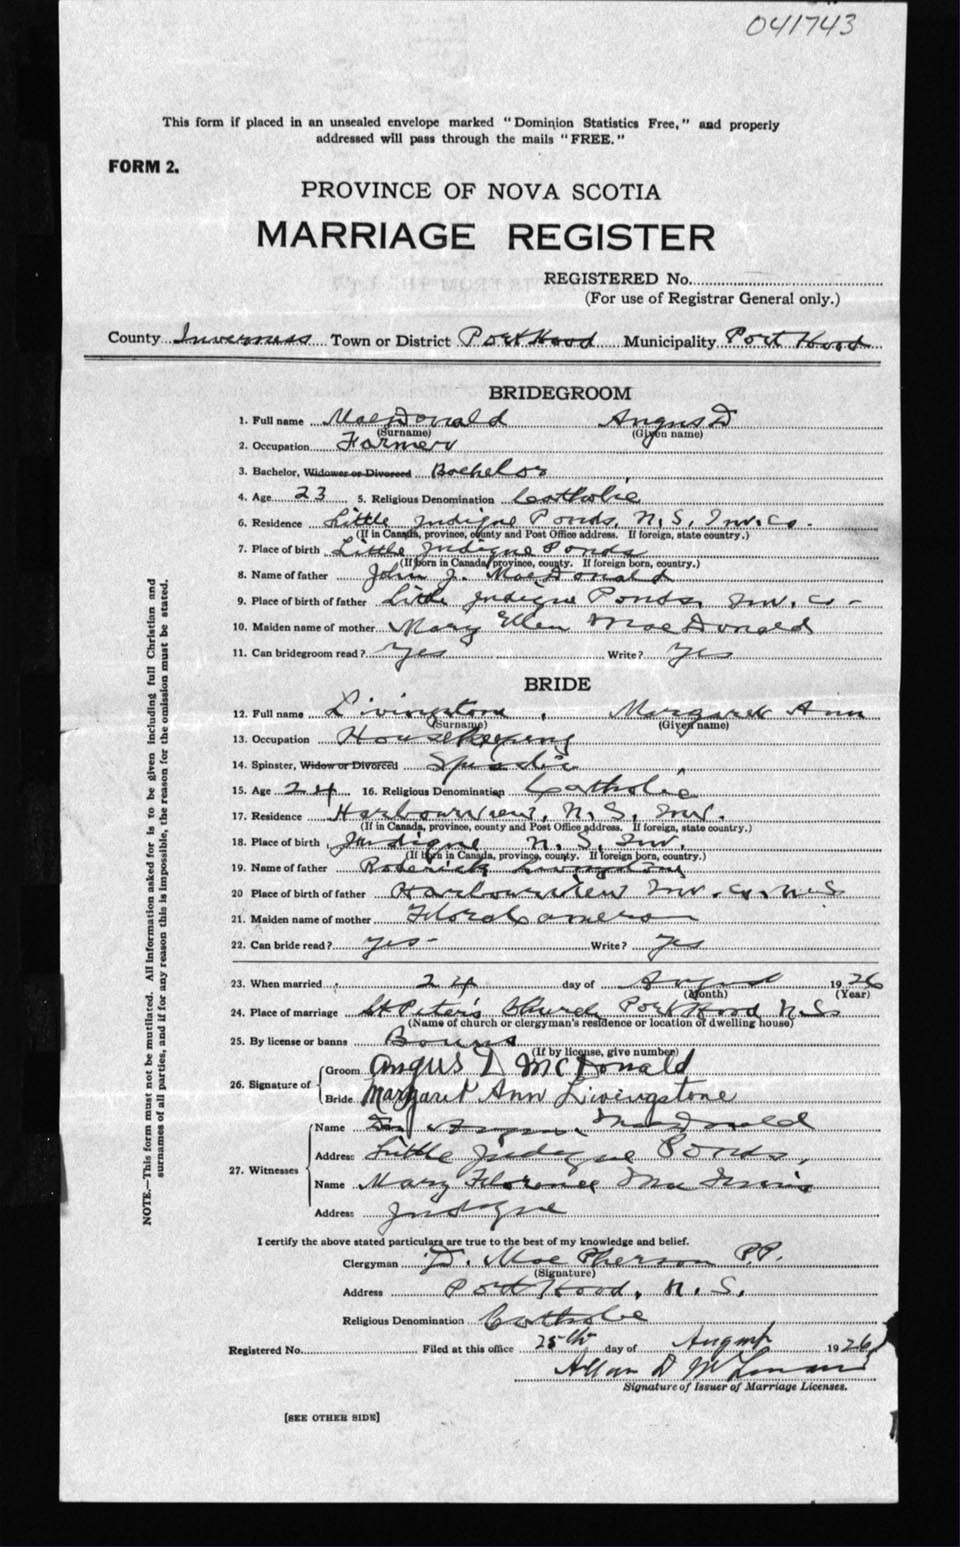 041743
This form if placed in an unsealed envelope marked "Dominion Statistics Free," and properly
addressed will pass through the mails "FREE."
FORM 2.
PROVINCE OF NOVA SCOTIA
MARRIAGE REGISTER
REGISTERED No.
(For use of Registrar General only.)
County Inverness Town or District Port Hood Municipality Port Hood
BRIDEGROOM
1. Full name MacDonald Angus D
(Surname) (Given name)
2. Occupation Farmer
3. Bachelor, Widower or Divorced Bachelor
4. Age 23 5. Religious Denomination Catholic
6. Residence Little Judique Ponds, N.S, Inv. Co.
(If in Canada, province, county and Post Office address. If foreign, state country.)
7. Place of birth Little Judique Ponds
(If born in Canada, province, county. If foreign born, country.)
8. Name of father John J. MacDonald
9. Place of birth of father Little Judique Ponds, Inv. Co -
10. Maiden name of mother Mary Ellen MacDonald
11. Can bridegroom read? Yes Write? Yes
BRIDE
12. Full name Livingstone, Margaret Ann
(Surname) (Given name)
13. Occupation Housekeeping
14. Spinster, Widow or Divorced Spinster
15. Age 24 16. Religious Denomination Catholic
17. Residence Harbourview, N.S, Inv.
(If in Canada, province, county and Post Office address. If foreign, state country.)
18. Place of birth Judique N.S, Inv.
(If born in Canada, province, county. If foreign born, country.)
19. Name of father Roderick Livingstone
20 Place of birth of father Harbourview Inv. Co. N.S
21. Maiden name of mother Flora Cameron
22. Can bride read? Yes - Write? Yes
23. When married 24 day of August 1926
(Month) (Year)
24. Place of marriage St Peter's Church Port Hood N.S
(Name of church or clergyman's residence or location of dwelling house)
25. By license or banns Banns
(If by license, give number)
26. Signature of Groom Angus D McDonald
Bride Margaret Ann Livingstone
27. Witnesses Name MacDonald
Address Little Judique Ponds,
Name Mary Florence
Address Judique
I certify the above stated particulars are true to the best of my knowledge and belief.
Clergyman D. MacPherson P.P.
(Signature)
Address Port Hood, N.S.
Religious Denomination Catholic
Registered No. Filed at this office 25th day of August 1926
Allan D
Signature of Issuer of Marriage Licenses.
[SEE OTHER SIDE]
NOTE.—This form must not be mutilated. All information asked for is to be given including full Christian and
surnames of all parties, and if for any reason this is impossible, the reason for the omission must be stated.